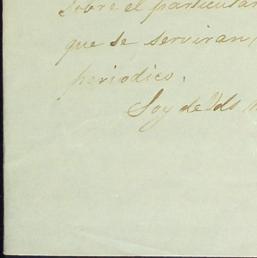 sobre el particular
que se serviran
periodico.
Soy de Vds